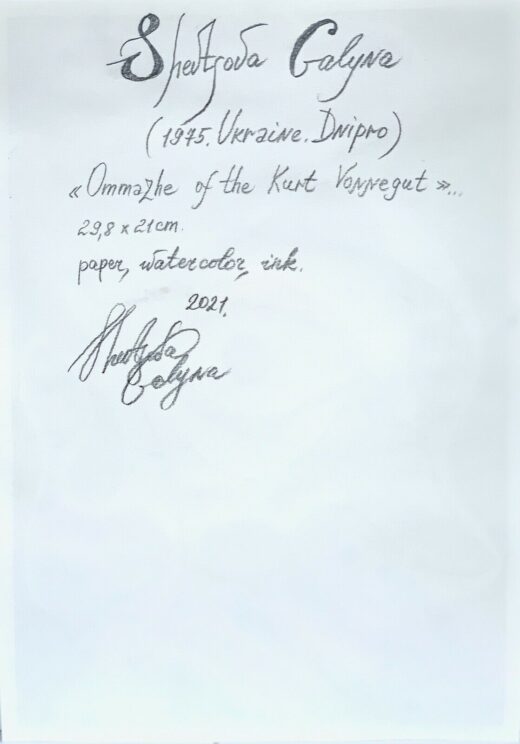 Shevtsova Galyna
(1975. Ukraine. Dnipro)
«Ommazhe of the Kurt Vonnegut»...
29,8 x 21cm.
paper, watercolor, ink.
2021.
Shevtsova
Galyna